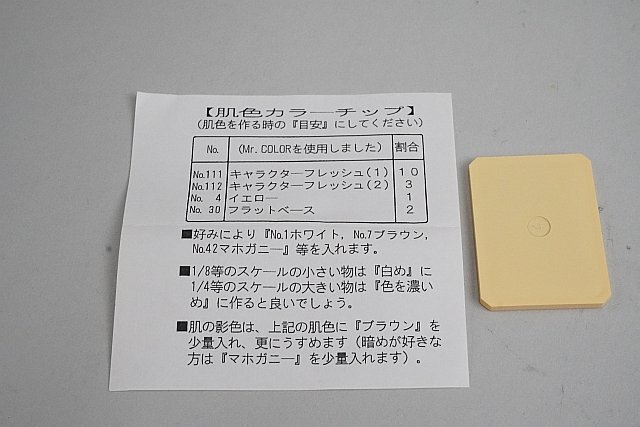 【肌色カラーチップ】
(肌色を作る時の『目安』にしてください)
No. (Mr. COLORを使用しました) 割合
No.111 キャラクターフレッシュ(1) 10
No.112 キャラクターフレッシュ(2) 3
No. 4 イエロー 1
No. 30 フラットベース 2
■好みにより『No.1ホワイト, No.7ブラウン,
No.42マホガニー』等を入れます。
■1/8等のスケールの小さい物は『白め』に
1/4等のスケールの大きい物は『色を濃い
め』に作ると良いでしょう。
■肌の影色は、上記の肌色に『ブラウン』を
少量入れ、更にうすめます(暗めが好きな
方は『マホガニー』を少量入れます)。